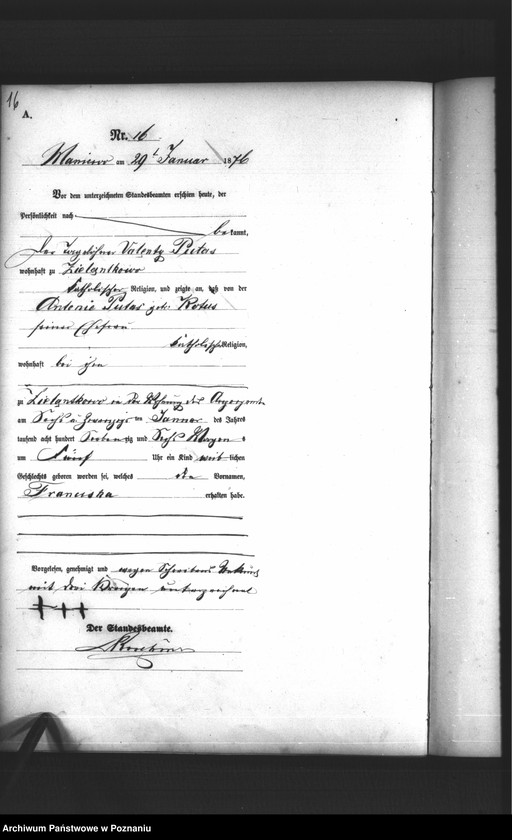 16
A.
Nr. 16
Maniewo am 29t Januar 1876
Vor dem unterzeichneten Standesbeamten erschien heute, der
Persönlichkeit nach
bekannt,
der Tagelöhner Valenty Putas
wohnhaft zu Zielantkowo
katholischer Religion, und zeigte an, daß von der
Antonie Putas geb. Kotus
seiner Ehefrau
katholischer Religion,
wohnhaft bei ihm
zu Zielantkowo in der Wohnung des
am Sechs u. Zwanzigsten Januar des Jahres
tausend acht hundert Siebenzig und Sechs Morgens
um Fünf Uhr ein Kind weiblichen
Geschlechts geboren worden sei, welches den Vornamen,
Franciska erhalten habe.
Vorgelesen, genehmigt und wegen Schreibens
mit drei Kreuzen unterzeichnet
+++
Der Standesbeamte.
Archiwum Państwowe w Poznaniu